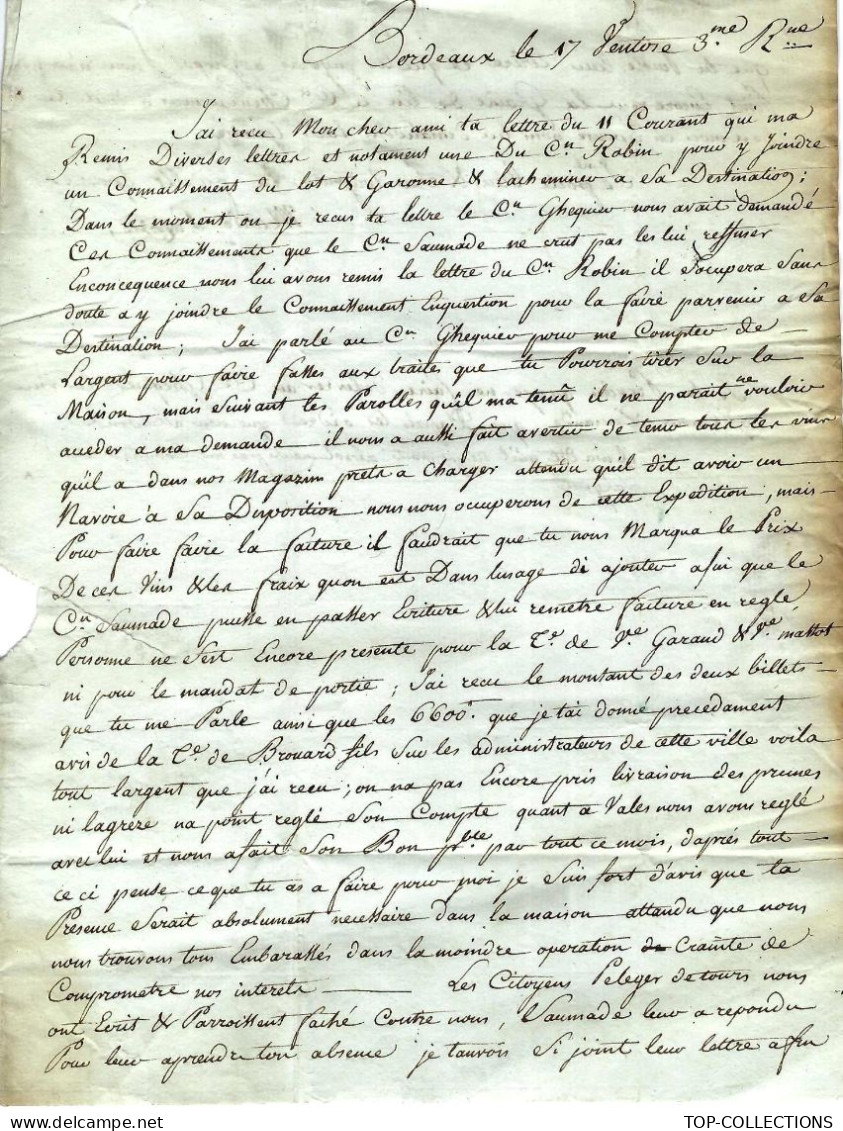 Bordeaux le 17 Ventose 3.me Rue
J'ai recu Mon cher ami ta lettre du 11 Courant qui ma
Remis Diverses lettres et notament une Du C.n Robin pour y Joindre
un Connaissement du lot & Garonne & lacheminer a sa Destination;
Dans le moment ou je recus ta lettre le C.n Ghequier nous avait demandé
Ces Connaissements que le C.n Saumade ne crut pas les lui reffuser
Enconcequence nous lui avons remis la lettre du C.n Robin il socupera sans
doute a y joindre le Connaissement Enquestion pour la faire parvenir a Sa
Destination; J'ai parlé au C.n Ghequier pour me Compter de
Largent pour faire fasses aux traites que tu Pourrois tirer Sur la
Maison, mais Suivant les Parolles quil ma tenû il ne parait ne vouloir
acceder a ma demande il nous a aussi fait avertir de tenir tous les vins
quil a dans nos Magazins prets a charger attendu quil dit avoir un
Navire a Sa Disposition nous nous occuperons de cette Expedition, mais
Pour faire faire la facture il faudrait que tu nous Marqua le Prix
De ces Vins & les fraix quon est Dans lusage di ajouter afin que le
C.n Saumade puisse en passer Ecriture & lui remetre facture en regle,
Personne ne Sest Encore presenté pour la T.e de V.e Garaud & V.e mattot
ni pour le mandat de portié; J'ai recu le montant des deux billets
que tu me Parle ainsi que les 6600.# que je tai donné precedament
avis de la T.e de Brouard fils Sur les administrateurs de cette ville voila
tout largent que j'ai recu; on na pas Encore pris livraison des prunes
ni lagreze na point reglé Son Compte quant a Vales nous avons reglé
avec lui et nous a fait Son Bon p.ble par tout ce mois, daprés tout
ce ci pense ce que tu as a faire pour moi je Suis fort d'avis que ta
Presence Serait absolument necessaire dans la maison attandu que nous
nous trouvons tous Embarassés dans la moindre operation crainte de
Comprometre nos interets ——— Les Citoyens Peleger de tours nous
ont Ecrit & Parroissent faché Contre nous, Saumade leur a repondu
Pour leur aprendre ton absence je tanvois Si joint leur lettre afin
TOP-COLLECTIONS